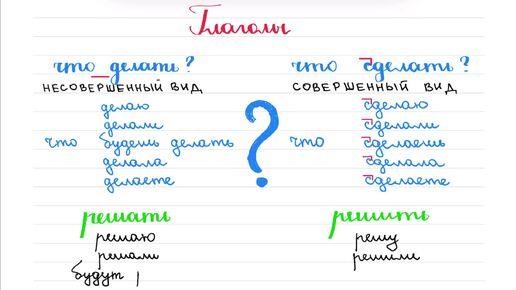 Глаголы
что делать?
НЕСОВЕРШЕННЫЙ ВИД
делаю
делали
что будешь делать
делала
делаете
?
решать
решаю
решали
будут
что сделать?
СОВЕРШЕННЫЙ ВИД
сделаю
сделали
что сделаешь
сделала
сделаете
решить
решу
решили